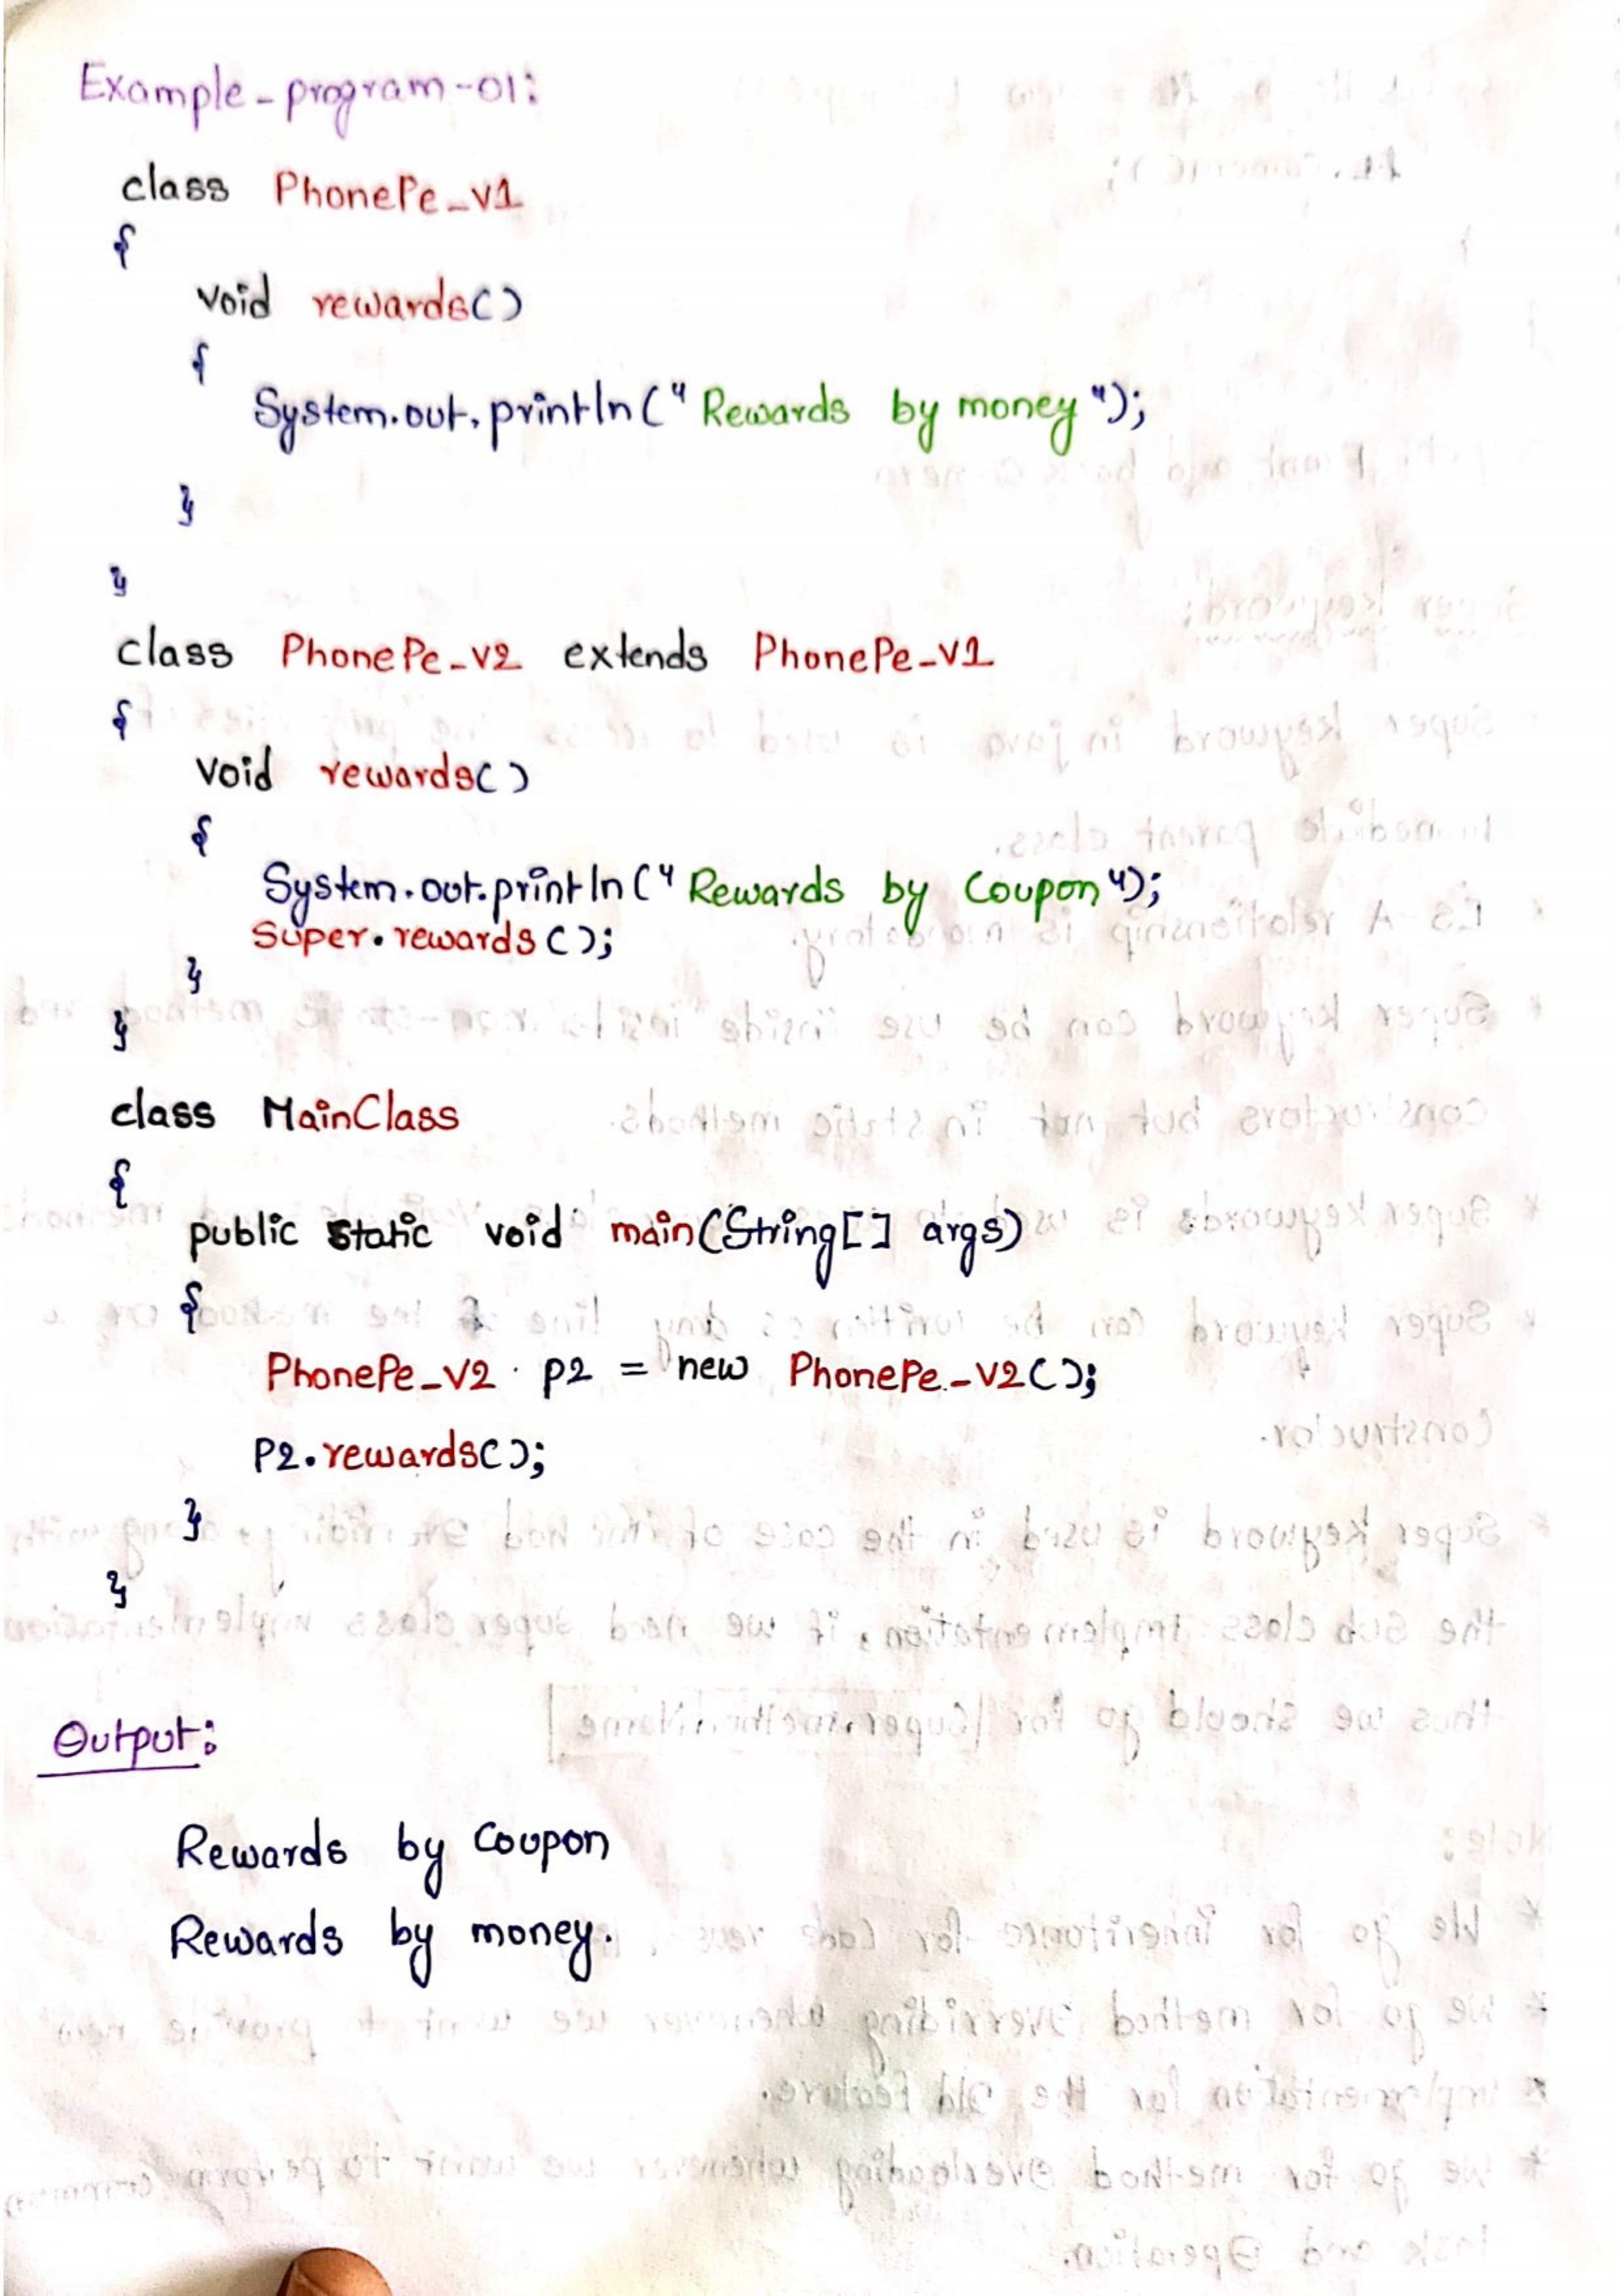 Example-program-01:
class PhonePe_V1
{
void rewards()
{
System.out.println("Rewards by money");
}
}
class PhonePe_V2 extends PhonePe_V1
{
void rewards()
{
System.out.println("Rewards by Coupon");
Super.rewards();
}
}
class MainClass
{
public static void main(String[] args)
{
PhonePe_V2 p2 = new PhonePe_V2();
P2.rewards();
}
}
Output:
Rewards by Coupon
Rewards by money.